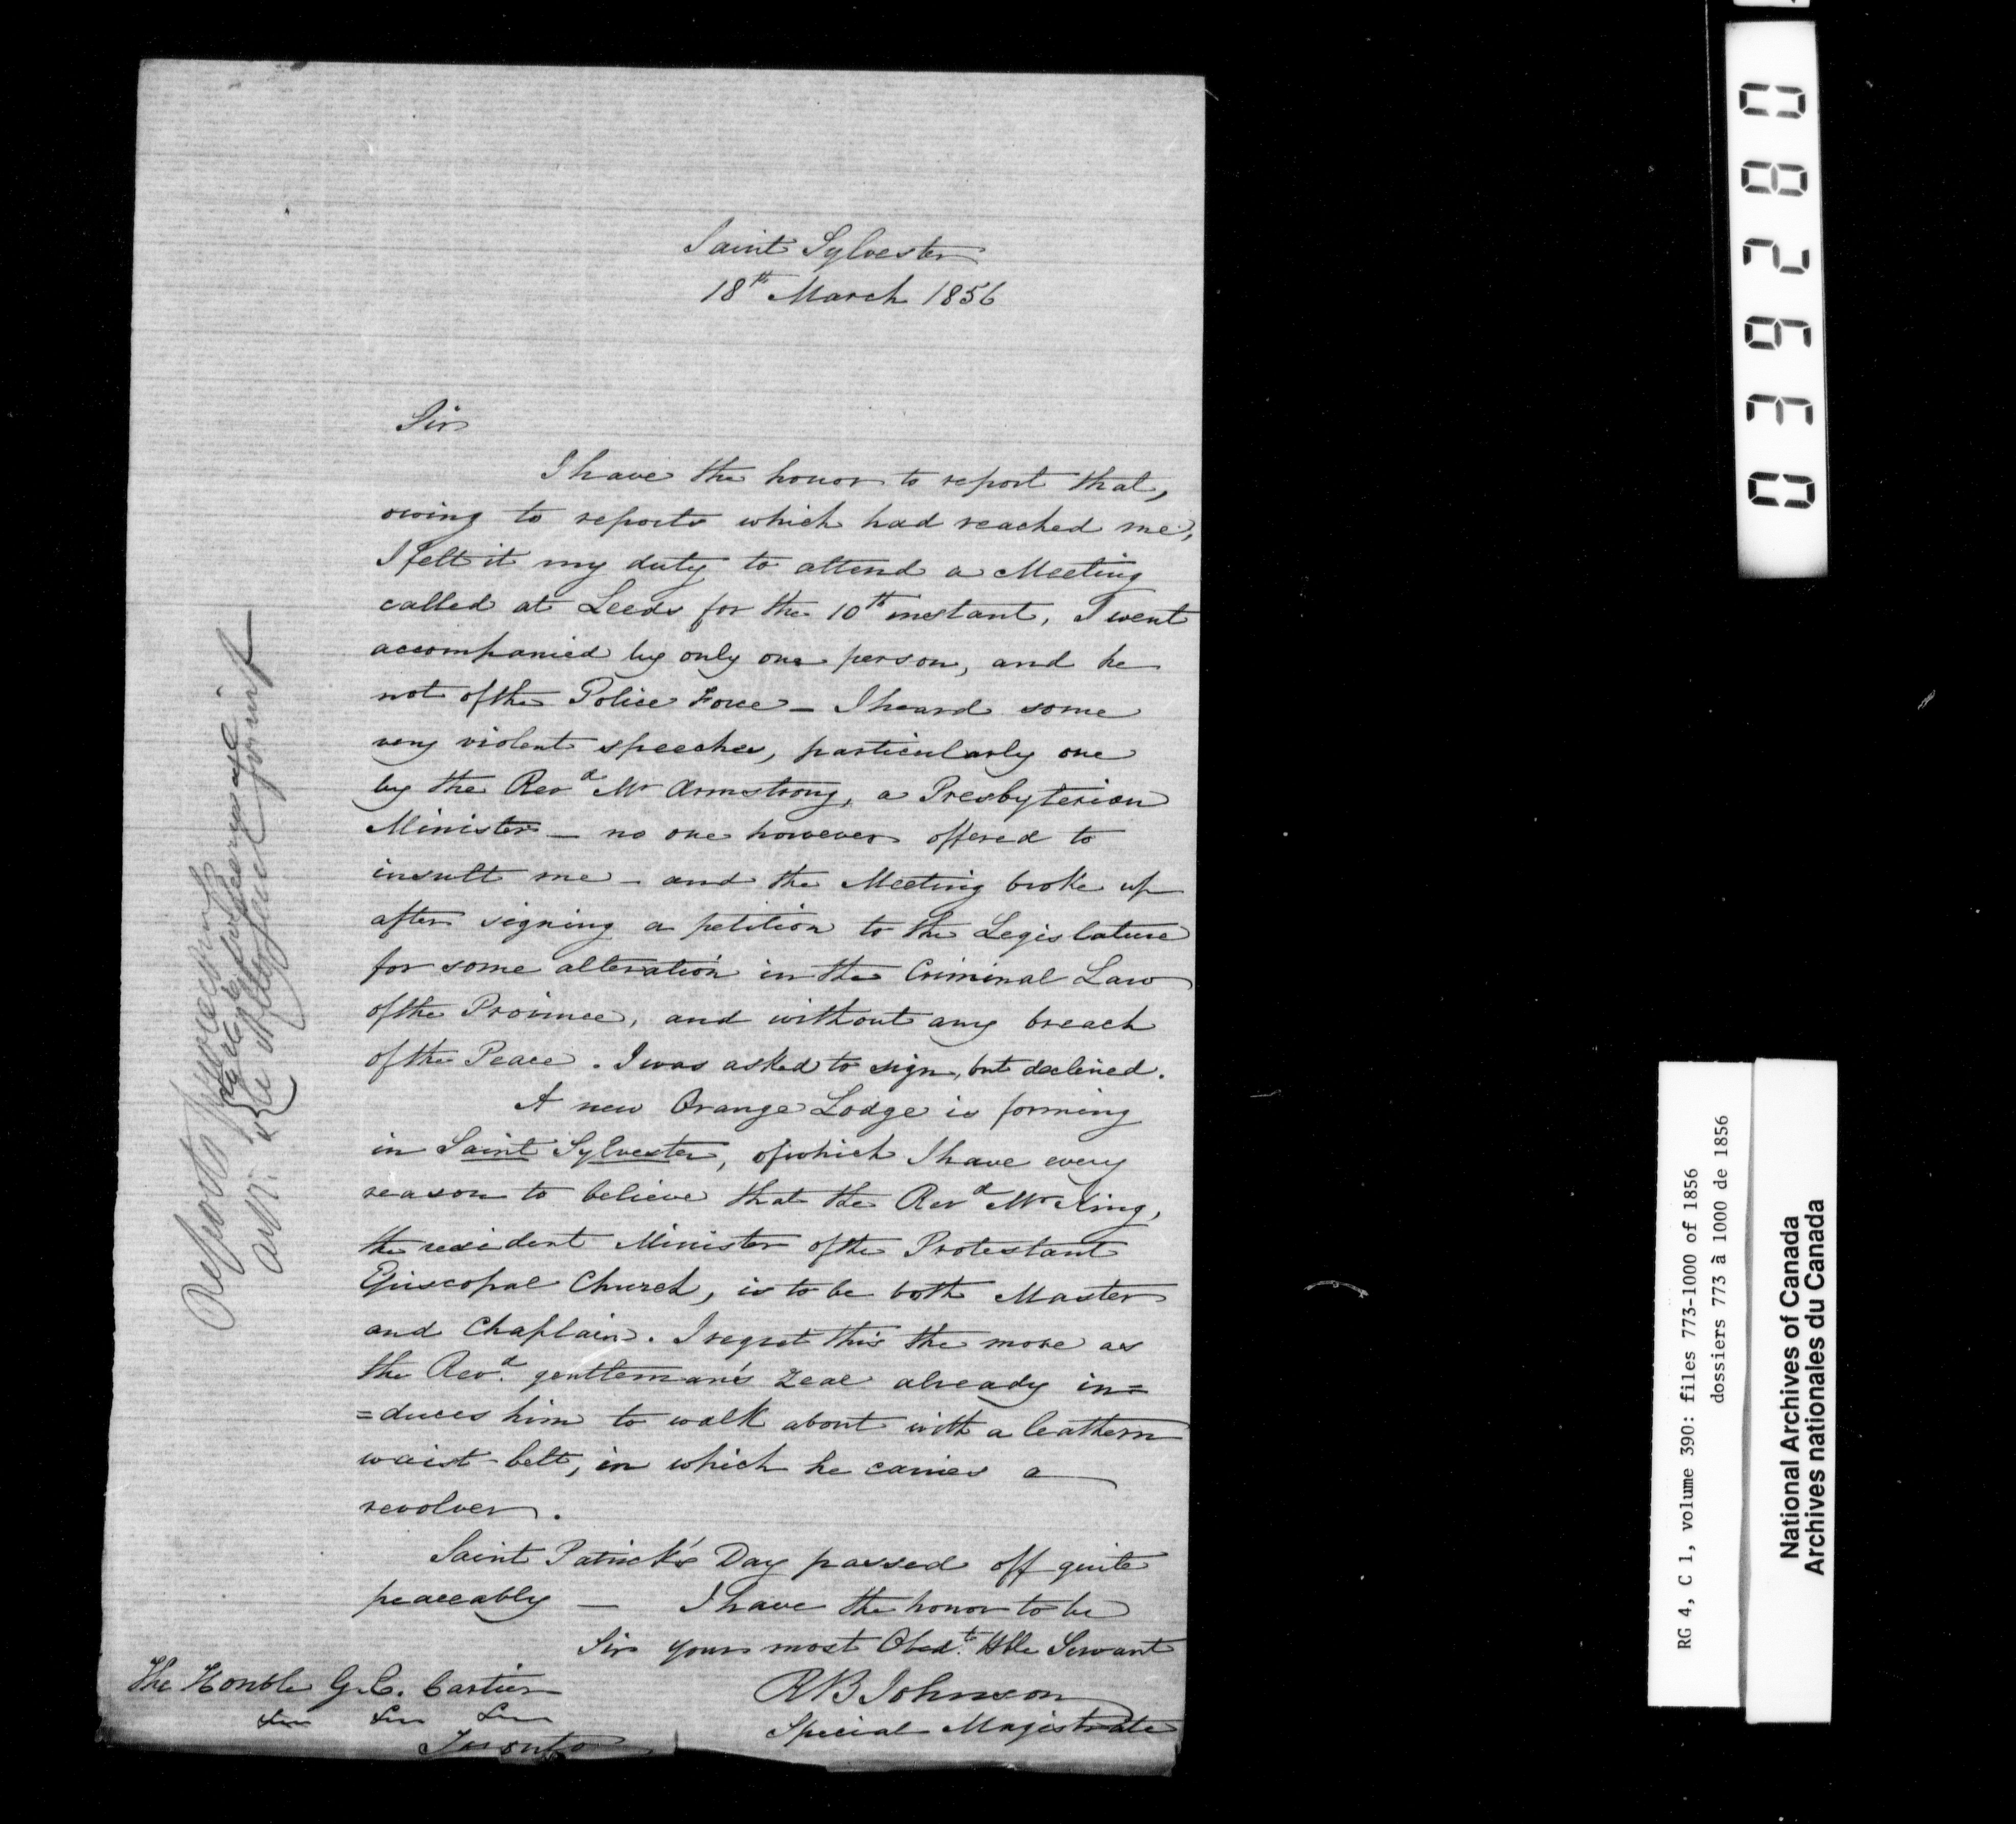 Saint Sylvester
18th March 1856
Sir
I have the honor to report that,
owing to reports which had reached me,
I felt it my duty to attend a Meeting
called at Leeds for the 10th instant, I went
accompanied by only one person, and he
not of the Police Force - I heard some
very violent speeches, particularly one
by the Revd Mr Armstrong, a Presbyterian
Minister - no one however offered to
insult me - and the Meeting broke up
after signing a petition to the Legislature
for some alteration in the Criminal Law
of the Province, and without any breach
of the Peace. I was asked to sign, but declined.
A new Orange Lodge is forming
in Saint Sylvester, of which I have every
reason to believe that the Revd Mr King,
the resident Minister of the Protestant
Episcopal Church, is to be both Master
and Chaplain. I regret this the more as
the Revd. gentleman's zeal already in=
=duces him to walk about with a leathern
waist-belt, in which he carries a
revolver.
Saint Patrick's Day passed off quite
peaceably — I have the honor to be
Sir your most Obedt. Hble Servant
The Honble G. E. Cartier
RB Johnson
Special Magistrate
Toronto
Reports
082630
RG 4, C 1, volume 390: files 773-1000 of 1856
dossiers 773 à 1000 de 1856
National Archives of Canada
Archives nationales du Canada